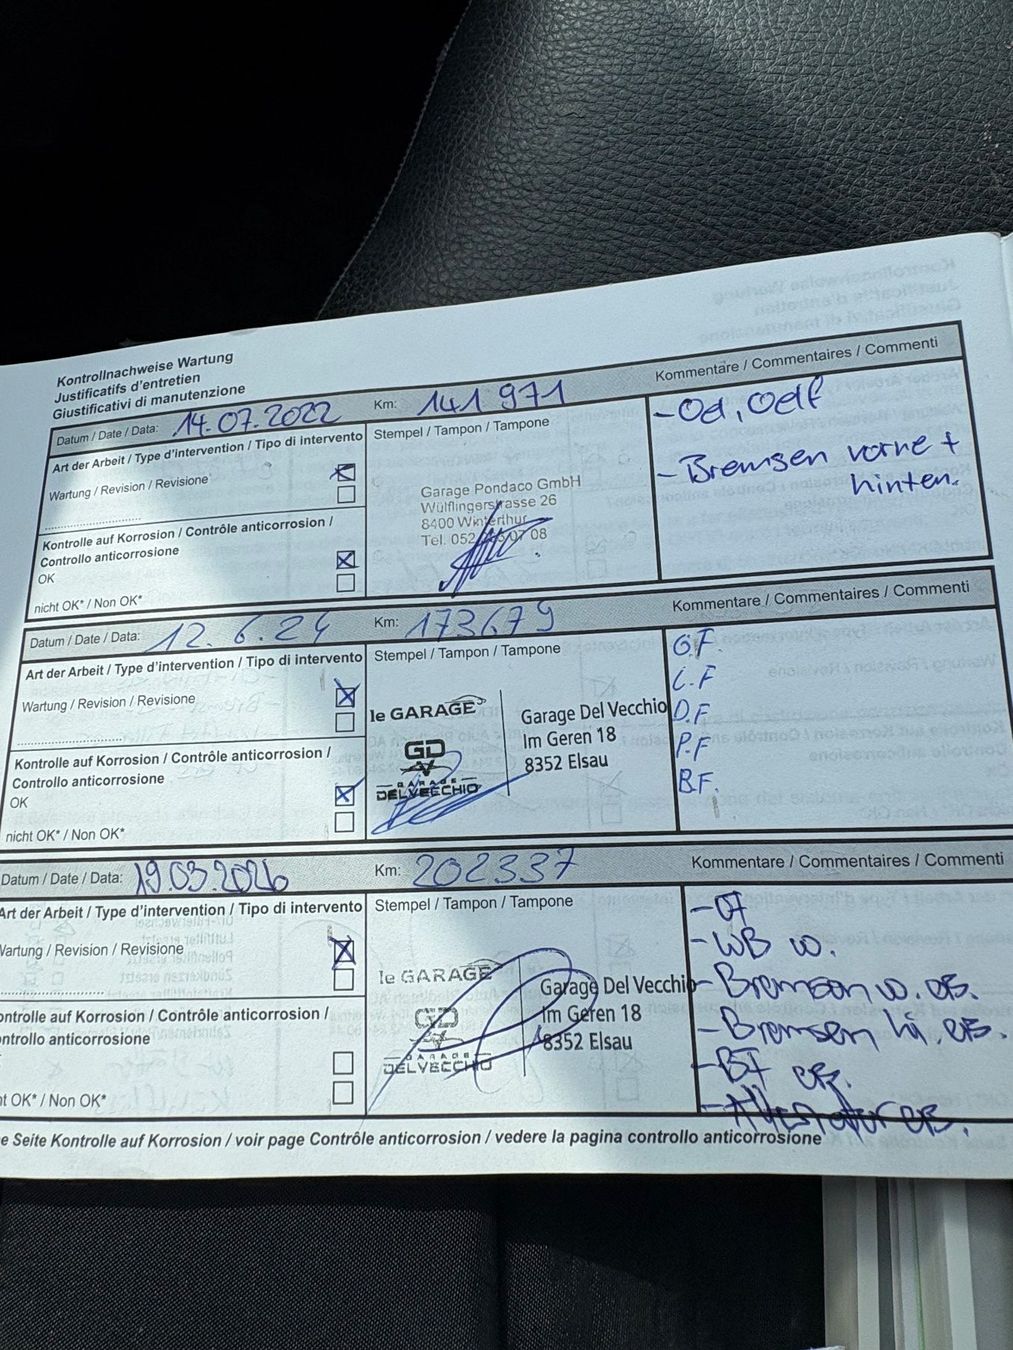 Kontrollnachweise Wartung
Justificatifs d'entretien
Giustificativi di manutenzione
Datum / Date / Data: 14.07.2022
Km: 141 971
Kommentare / Commentaires / Commenti
Art der Arbeit / Type d'intervention / Tipo di intervento
Wartung / Revision / Revisione
Kontrolle auf Korrosion / Contrôle anticorrosion /
Controllo anticorrosione
OK
nicht OK* / Non OK*
Stempel / Tampon / Tampone
Garage Pondaco GmbH
Wülflingerstrasse 26
8400 Winterthur
Tel. 052 07 08
- Oel, Oelf
- Bremsen vorne +
hinten.
Datum / Date / Data: 12.6.24
Km: 173679
Kommentare / Commentaires / Commenti
Art der Arbeit / Type d'intervention / Tipo di intervento
Wartung / Revision / Revisione
Kontrolle auf Korrosion / Contrôle anticorrosion /
Controllo anticorrosione
OK
nicht OK* / Non OK*
Stempel / Tampon / Tampone
le GARAGE
GD
GARAGE
DELVECCHIO
Garage Del Vecchio
Im Geren 18
8352 Elsau
Ö.F.
L.F
D.F
P.F
B.F.
Datum / Date / Data: 19.03.2026
Km: 202337
Kommentare / Commentaires / Commenti
Art der Arbeit / Type d'intervention / Tipo di intervento
Wartung / Revision / Revisione
ontrolle auf Korrosion / Contrôle anticorrosion /
ontrollo anticorrosione
ht OK* / Non OK*
Stempel / Tampon / Tampone
le GARAGE
GD
GARAGE
DELVECCHIO
Garage Del Vecchio
Im Geren 18
8352 Elsau
- ÖF
- WB v.
- Bremsen v. ers.
- Bremsen hi. ers.
- BF ers.
- Alternator ers.
e Seite Kontrolle auf Korrosion / voir page Contrôle anticorrosion / vedere la pagina controllo anticorrosione